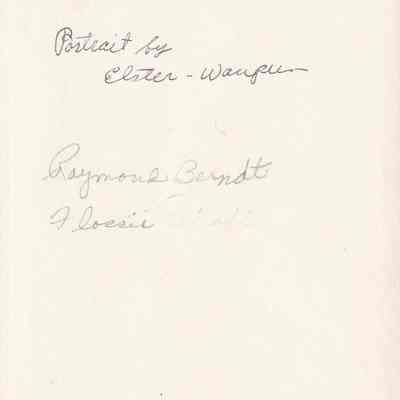 Portrait by
Elster - Waupun
Raymond Berndt
Flossie